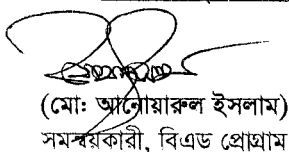 (মো: আনোয়ারুল ইসলাম)
সমন্বয়কারী, বিএড প্রোগ্রাম